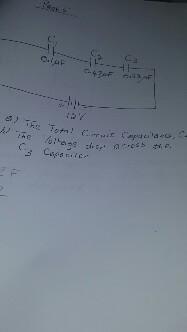 C1
C2 C3
0.1µF
0.43µF
12V
a) The Total Circuit Capacitance, C
b) The Voltage drop across the
C3 Capacitor